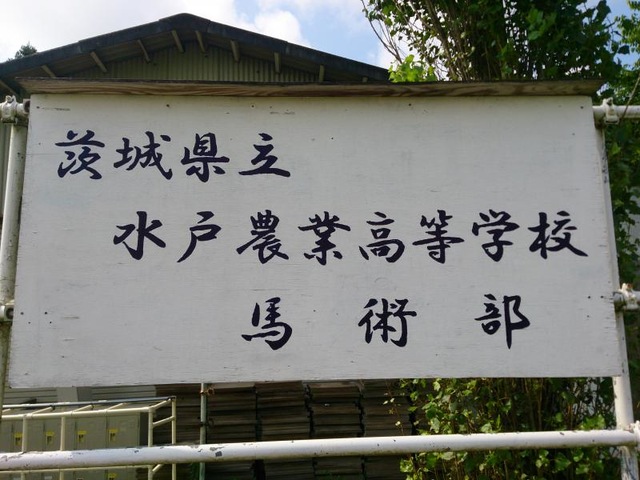 茨城県立
水戸農業高等学校
馬術部